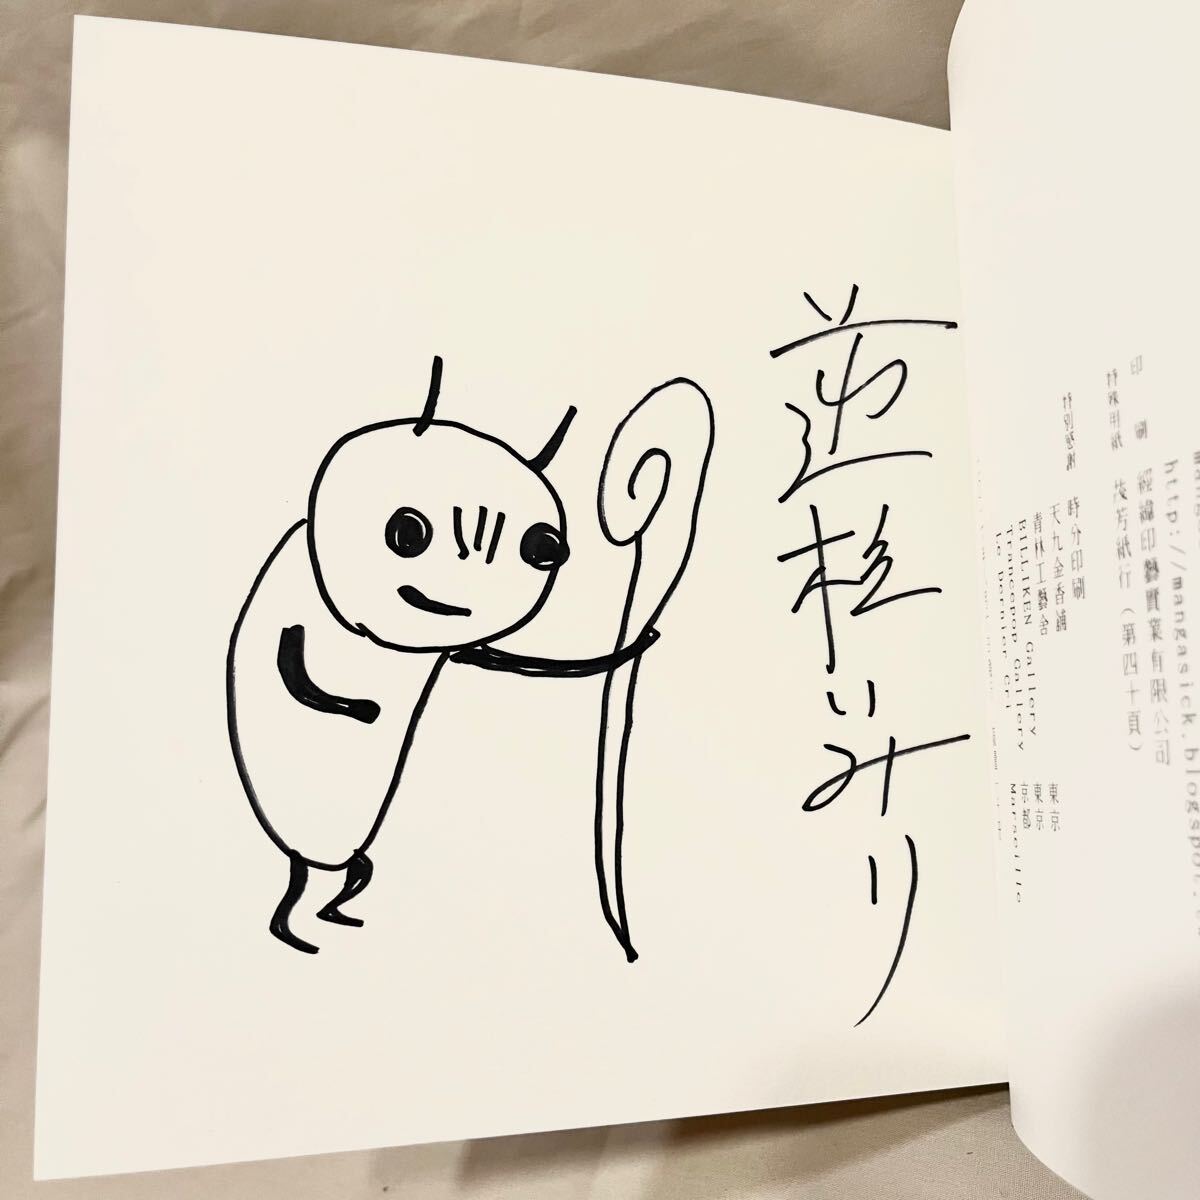 逆柱いみり
印　　刷　經緯印藝實業有限公司
特殊用紙　茂芳紙行（第四十頁）
特別感謝　時分印刷
天九金香舖
青林工藝舍　東京
BILLIKEN Gallery　東京
Trancepop Gallery　京都
Le Dernier Cri　Marseille